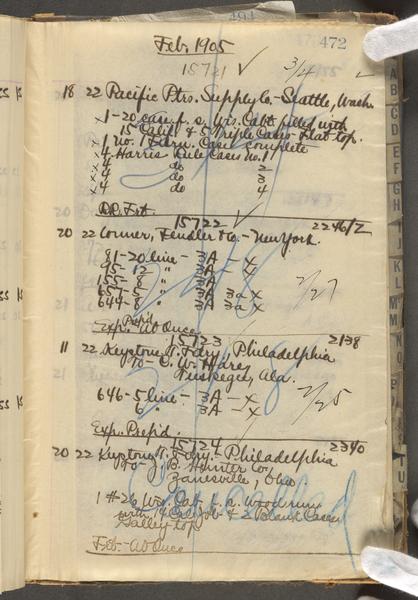 Feb. 1905 472
15721 3/4
18 22 Pacific Ptrs. Supply Co. - Seattle, Wash.
x 1-20 case f. s. Ws. Cabt. filled with
15 Calif. & 5 Triple Cases - Flat top.
x 1 No. 1 Furn. Case complete
x 4 Harris Rule Cases No. 1
x 4 do 2
x 4 do 3
x 4 do 4
R.R. Frt.
15722 2246/2
20 22 Conner, Fendler & Co. - New York.
81-20 line - 3A - x
95-12 " - 3A - x
155-8 " 3A
657-5 " 3A 3a x
644-8 " 3A 3a x
2/27
Exp. Prepd. At Once
15723 2138
11 22 Keystone T. Fdry., Philadelphia
To C. W. Hare,
Tuskegee, Ala.
646-5 line - 3A - x
6 " 3A - x
2/25
Exp. Prep'd.
15724 2340
20 22 Keystone T. Fdry. - Philadelphia
To J. B. Hunter Co.,
Zanesville, Ohio
Cancelled
1 #26 Wis. Cab. f. s. Woodrum
with 14 Cal. Job & 2 Blank Cases
Galley top
Feb. - At Once
A
B
C
D
E
F
G
H
I
J
K
L
M
N